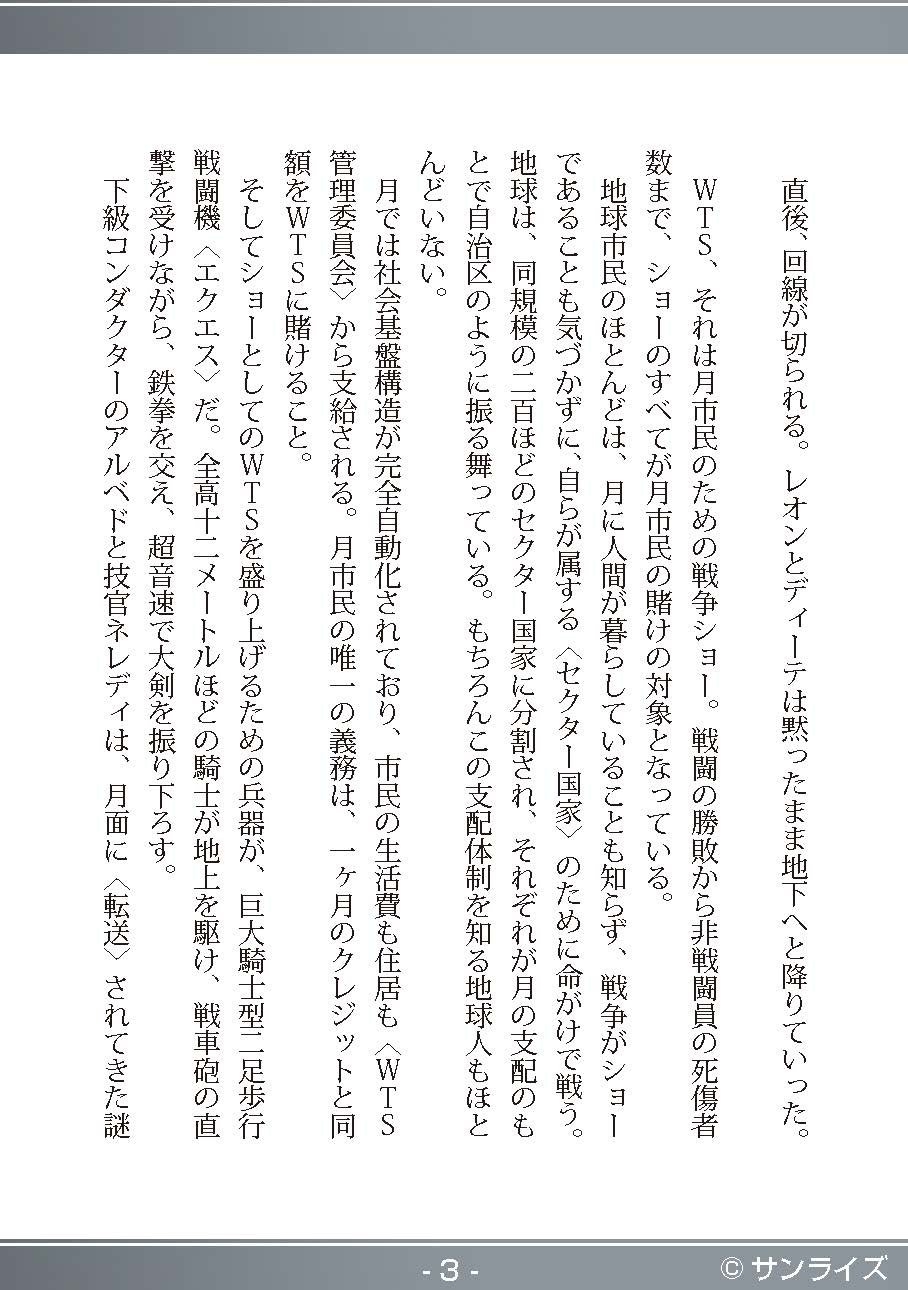 直後、回線が切られる。レオンとディーテは黙ったまま地下へと降りていった。
WTS、それは月市民のための戦争ショー。戦闘の勝敗から非戦闘員の死傷者
数まで、ショーのすべてが月市民の賭けの対象となっている。
地球市民のほとんどは、月に人間が暮らしていることも知らず、戦争がショー
であることも気づかずに、自らが属する〈セクター国家〉のために命がけで戦う。
地球は、同規模の二百ほどのセクター国家に分割され、それぞれが月の支配のも
とで自治区のように振る舞っている。もちろんこの支配体制を知る地球人もほと
んどいない。
月では社会基盤構造が完全自動化されており、市民の生活費も住居も〈WTS
管理委員会〉から支給される。月市民の唯一の義務は、一ヶ月のクレジットと同
額をWTSに賭けること。
そしてショーとしてのWTSを盛り上げるための兵器が、巨大騎士型二足歩行
戦闘機〈エクエス〉だ。全高十二メートルほどの騎士が地上を駆け、戦車砲の直
撃を受けながら、鉄拳を交え、超音速で大剣を振り下ろす。
下級コンダクターのアルベドと技官ネレディは、月面に〈転送〉されてきた謎
- 3 -
© サンライズ